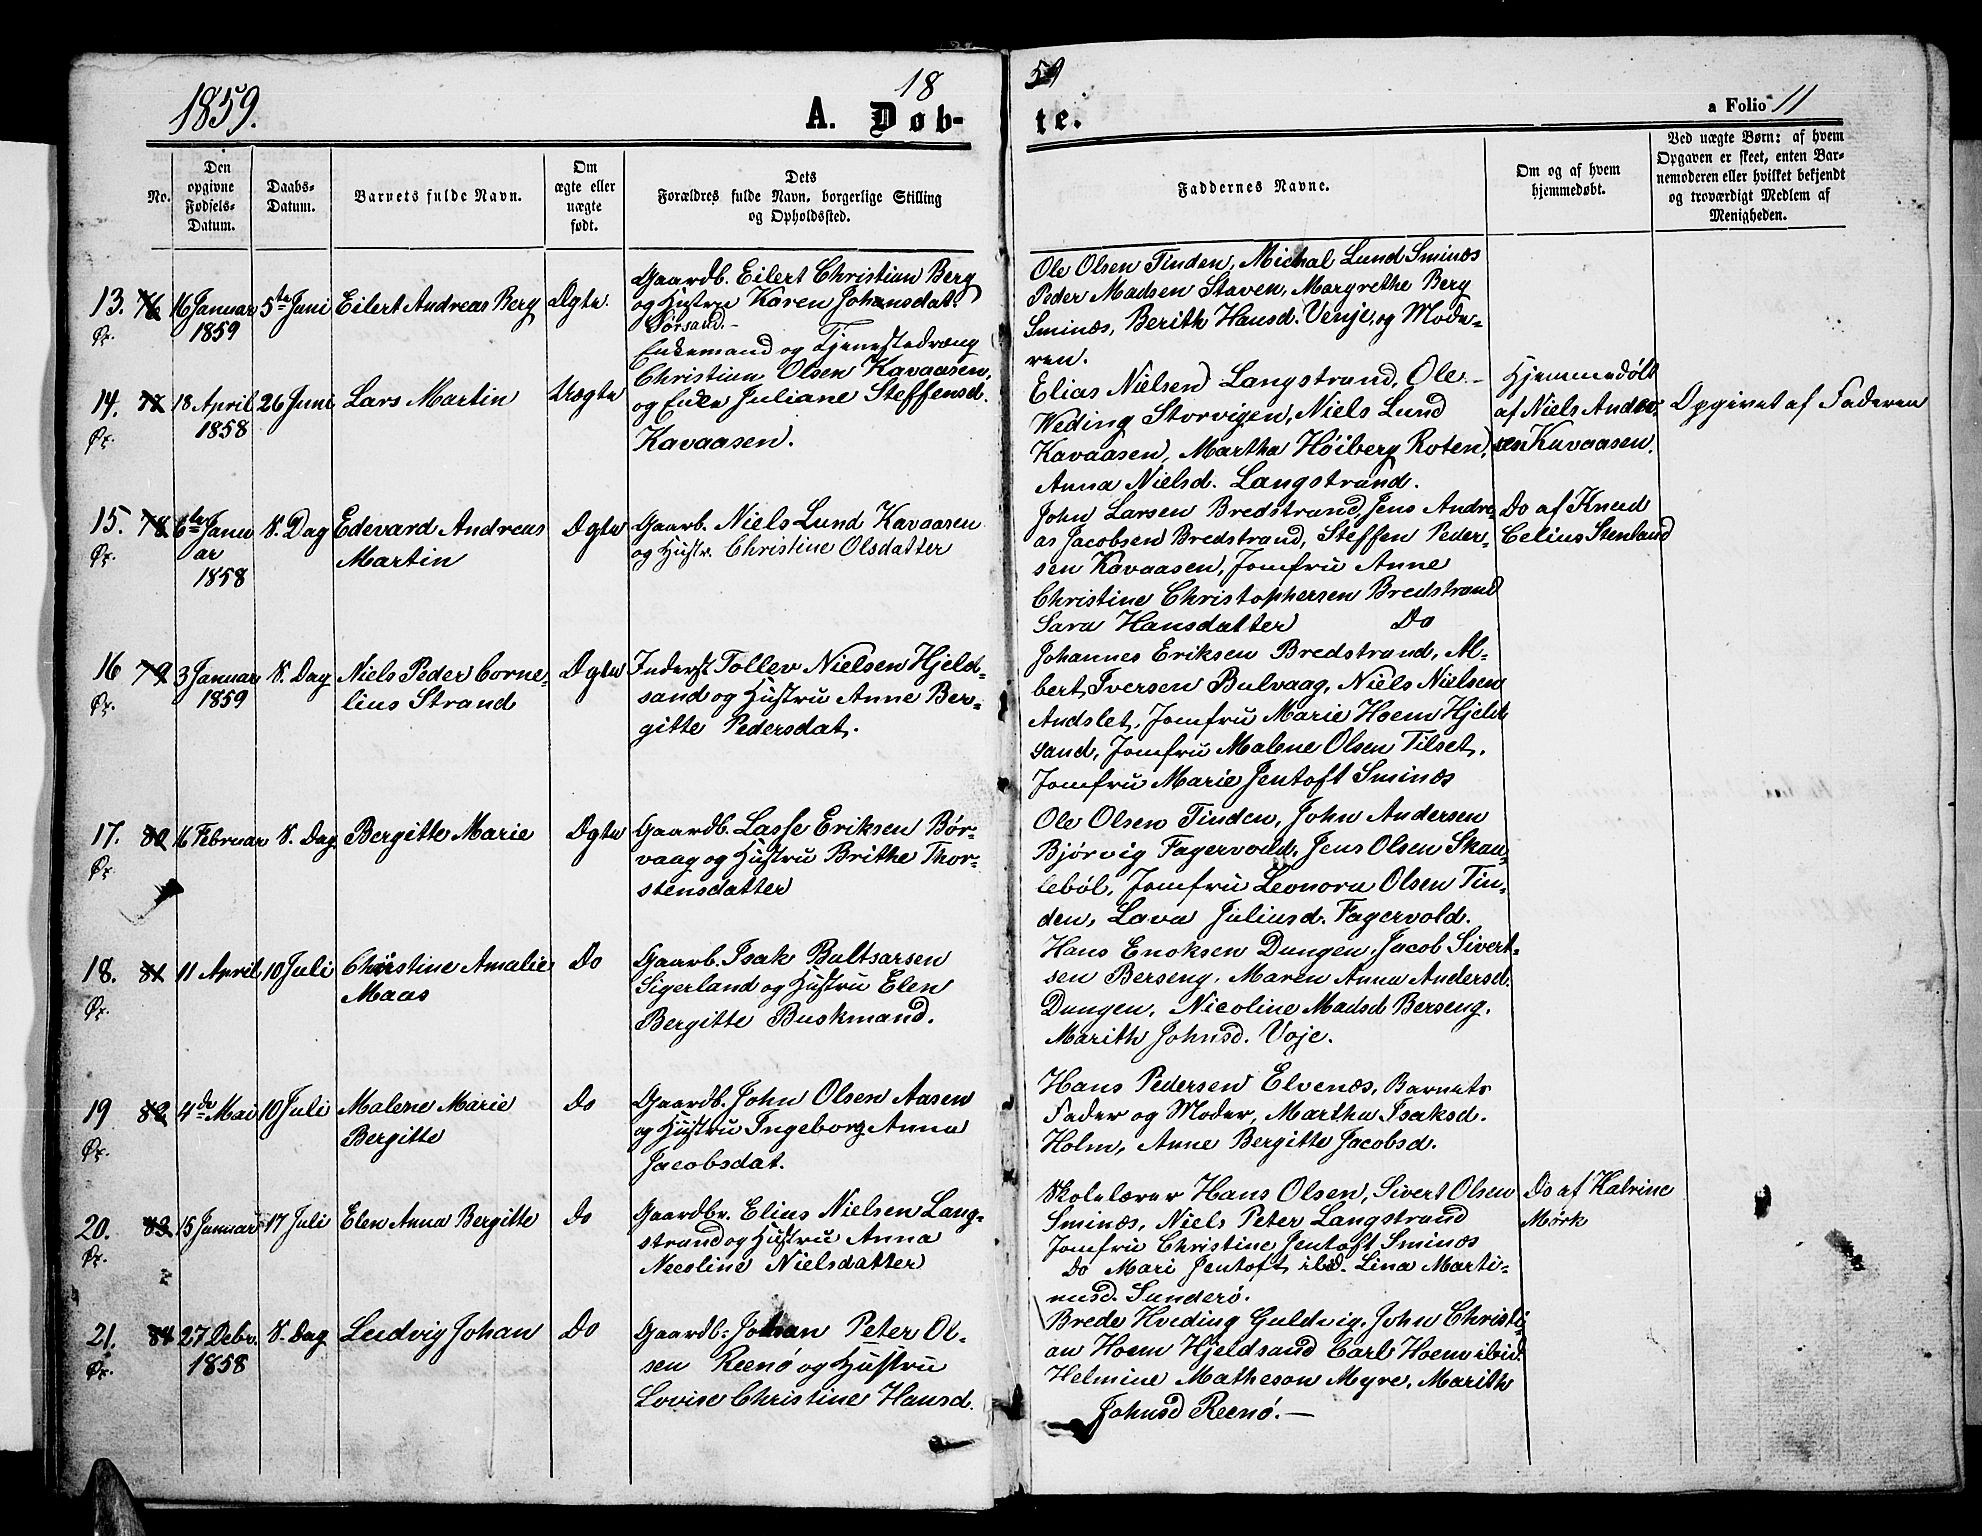 1859.
18
59
A. Døb-
te.
a Folio 11
No.
Den
opgivne
Fødsels-
Datum.
Daabs-
Datum.
Barnets fulde Navn.
Om
ægte eller
uægte
født.
Dets
Forældres fulde Navn, borgerlige Stilling
og Opholdssted.
Faddernes Navne.
Om og af hvem
hjemmedøbt.
Ved uægte Børn: af hvem
Opgaven er skeet, enten Bar-
nemoderen eller hvilket bekjendt
og troværdigt Medlem af
Menigheden.
13. 76
Øx.
16 Januar
1859
5te Juni
Eilert Andreas Berg
Ægte
Gaardb. Eilert Christian Berg
og Hustru Karen Johansdat.
Sørsand.-
Ole Olsen Tinden, Michal Lund Sminæs
Peder Madsen Staven, Margrethe Berg
Sminæs, Berith Hansd. Venje, og Mode-
ren.
14. 77
Øx.
18 April
1858
26 Juni
Lars Martin
Uægte
Enkemand og Tjenestedræng
Christian Olsen Kavaasen,
og Enke Juliane Steffensd.
Kavaasen.
Elias Nielsen Langstrand, Ole
Weding Storvigen, Niels Lund
Kavaasen, Martha Höiberg Roten,
Anna Nielsd. Langstrand.
Hjemmedøbt
af Niels Andre-
sen Kavaasen.
Opgivet af Faderen
15. 78
Øx.
6te Janu
ar
1858
S. Dag
Edevard Andreas
Martin
Ægte
Gaarb. Niels Lund Kavaasen
og Hustr. Christine Olsdatter
John Larsen Bredstrand, Jens Andre-
as Jacobsen Bredstrand, Steffen Peder-
sen Kavaasen, Jomfru Anne
Christine Christophersen Bredstrand
Sara Hansdatter Do
Do af Knud
Celius Stenland
16 79
Øx.
3 Januar
1859
S. Dag
Niels Peder Corne-
lius Strand
Ægte
Inderst Tollev Nielsen Hjeld-
sand og Hustru Anne Ber-
gitte Pedersdat.
Johannes Eriksen Bredstrand, Al-
bert Iversen Bulvaag, Niels Nielsen
Andslet, Jomfru Marie Hoem Hjeld
sand, Jomfru Malene Olsen Tilset,
Jomfru Marie Jentoft Sminæs
17. 80
Øx.
16 Februar
S. Dag
Bergitte Marie
Ægte
Gaardb. Lasse Eriksen Bør-
vaag og Hustru Brithe Thor-
stensdatter
Ole Olsen Tinden, John Andersen
Bjørvig Fagervold, Jens Olsen Skan-
lebøl, Jomfru Leonora Olsen Tin-
den, Lava Juliusd. Fagervold.
18. 81
Øx.
11 April
10 Juli
Christine Amalie
Maas
Do
Gaarb. Isak Baltsarsen
Sigerland og Hustru Elen
Bergitte Buskmand.
Hans Enoksen Dungen, Jacob Sivert-
sen Berseng, Maren Anna Andersd.
Dungen, Nicoline Madsd Berseng,
Marith Johnsd. Voje.
19 82
Øx.
4de Mai
10 Juli
Malene Marie
Bergitte
Do
Gaardb. John Olsen Aasen
og Hustru Ingeborg Anna
Jacobsdat.
Hans Pedersen Elvenæs, Barnets
Fader og Moder, Martha Isaksd.
Holm, Anne Bergitte Jacobsd.
20. 83
Øx.
15 Januar
17 Juli
Elen Anna Bergitte
Do
Gaardbr. Elius Nielsen Lang-
strand og Hustru Anna
Nicoline Nielsdatter
Skolelærer Hans Olsen, Sivert Olsen
Sminæs, Niels Peter Langstrand
Jomfru Christine Jentoft Sminæs
Do Mari Jentoft ibid. Lina Marti-
nusd. Sunderö.
Do af Katrine
Mørk
21. 84
Øx.
27 Debr.
1858
S. Dag
Ludvig Johan
Do
Gaardb. Johan Peter Ol-
sen Reenö og Hustru
Lovise Christine Hansd.
Brede Hveding Guldvig, John Christi-
an Hoem Hjeldsand Carl Hoem ibid.
Helmine Matheson Myre, Marith
Johnsd Reenö.-